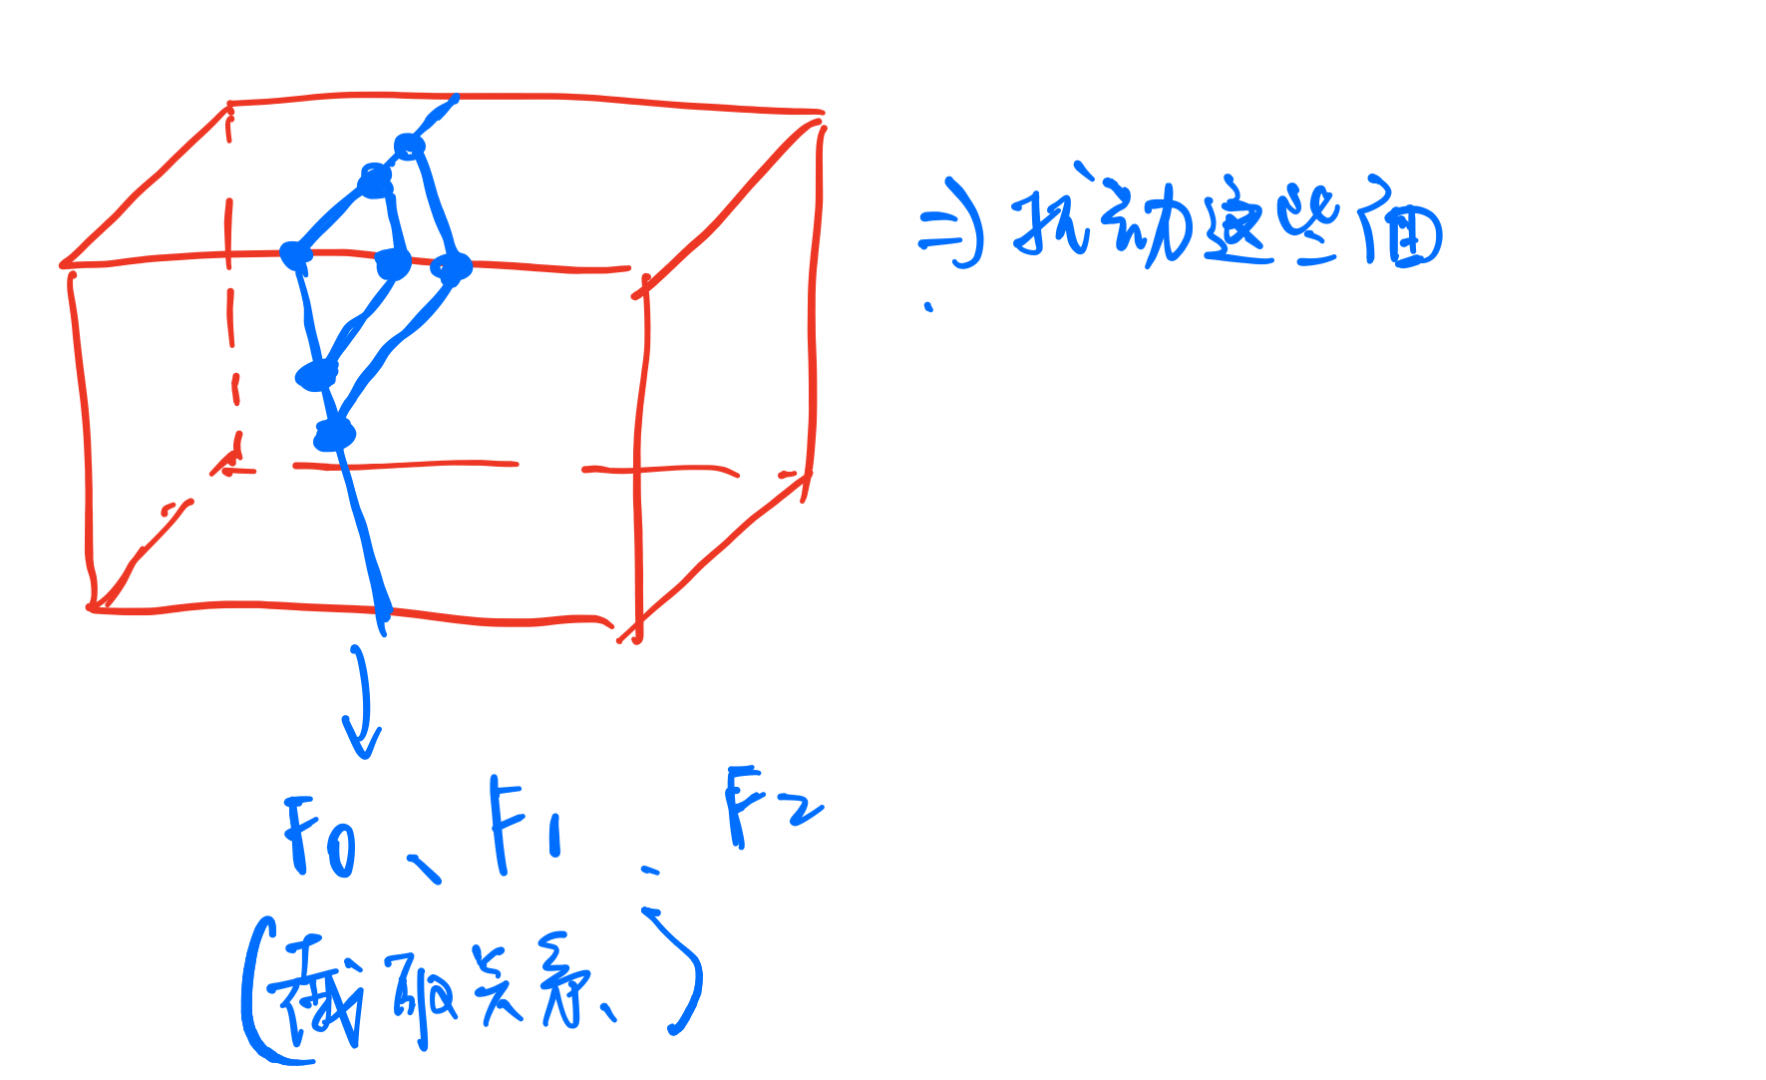 ⇒扰动这些面
F0、F1、F2
(截取关系)